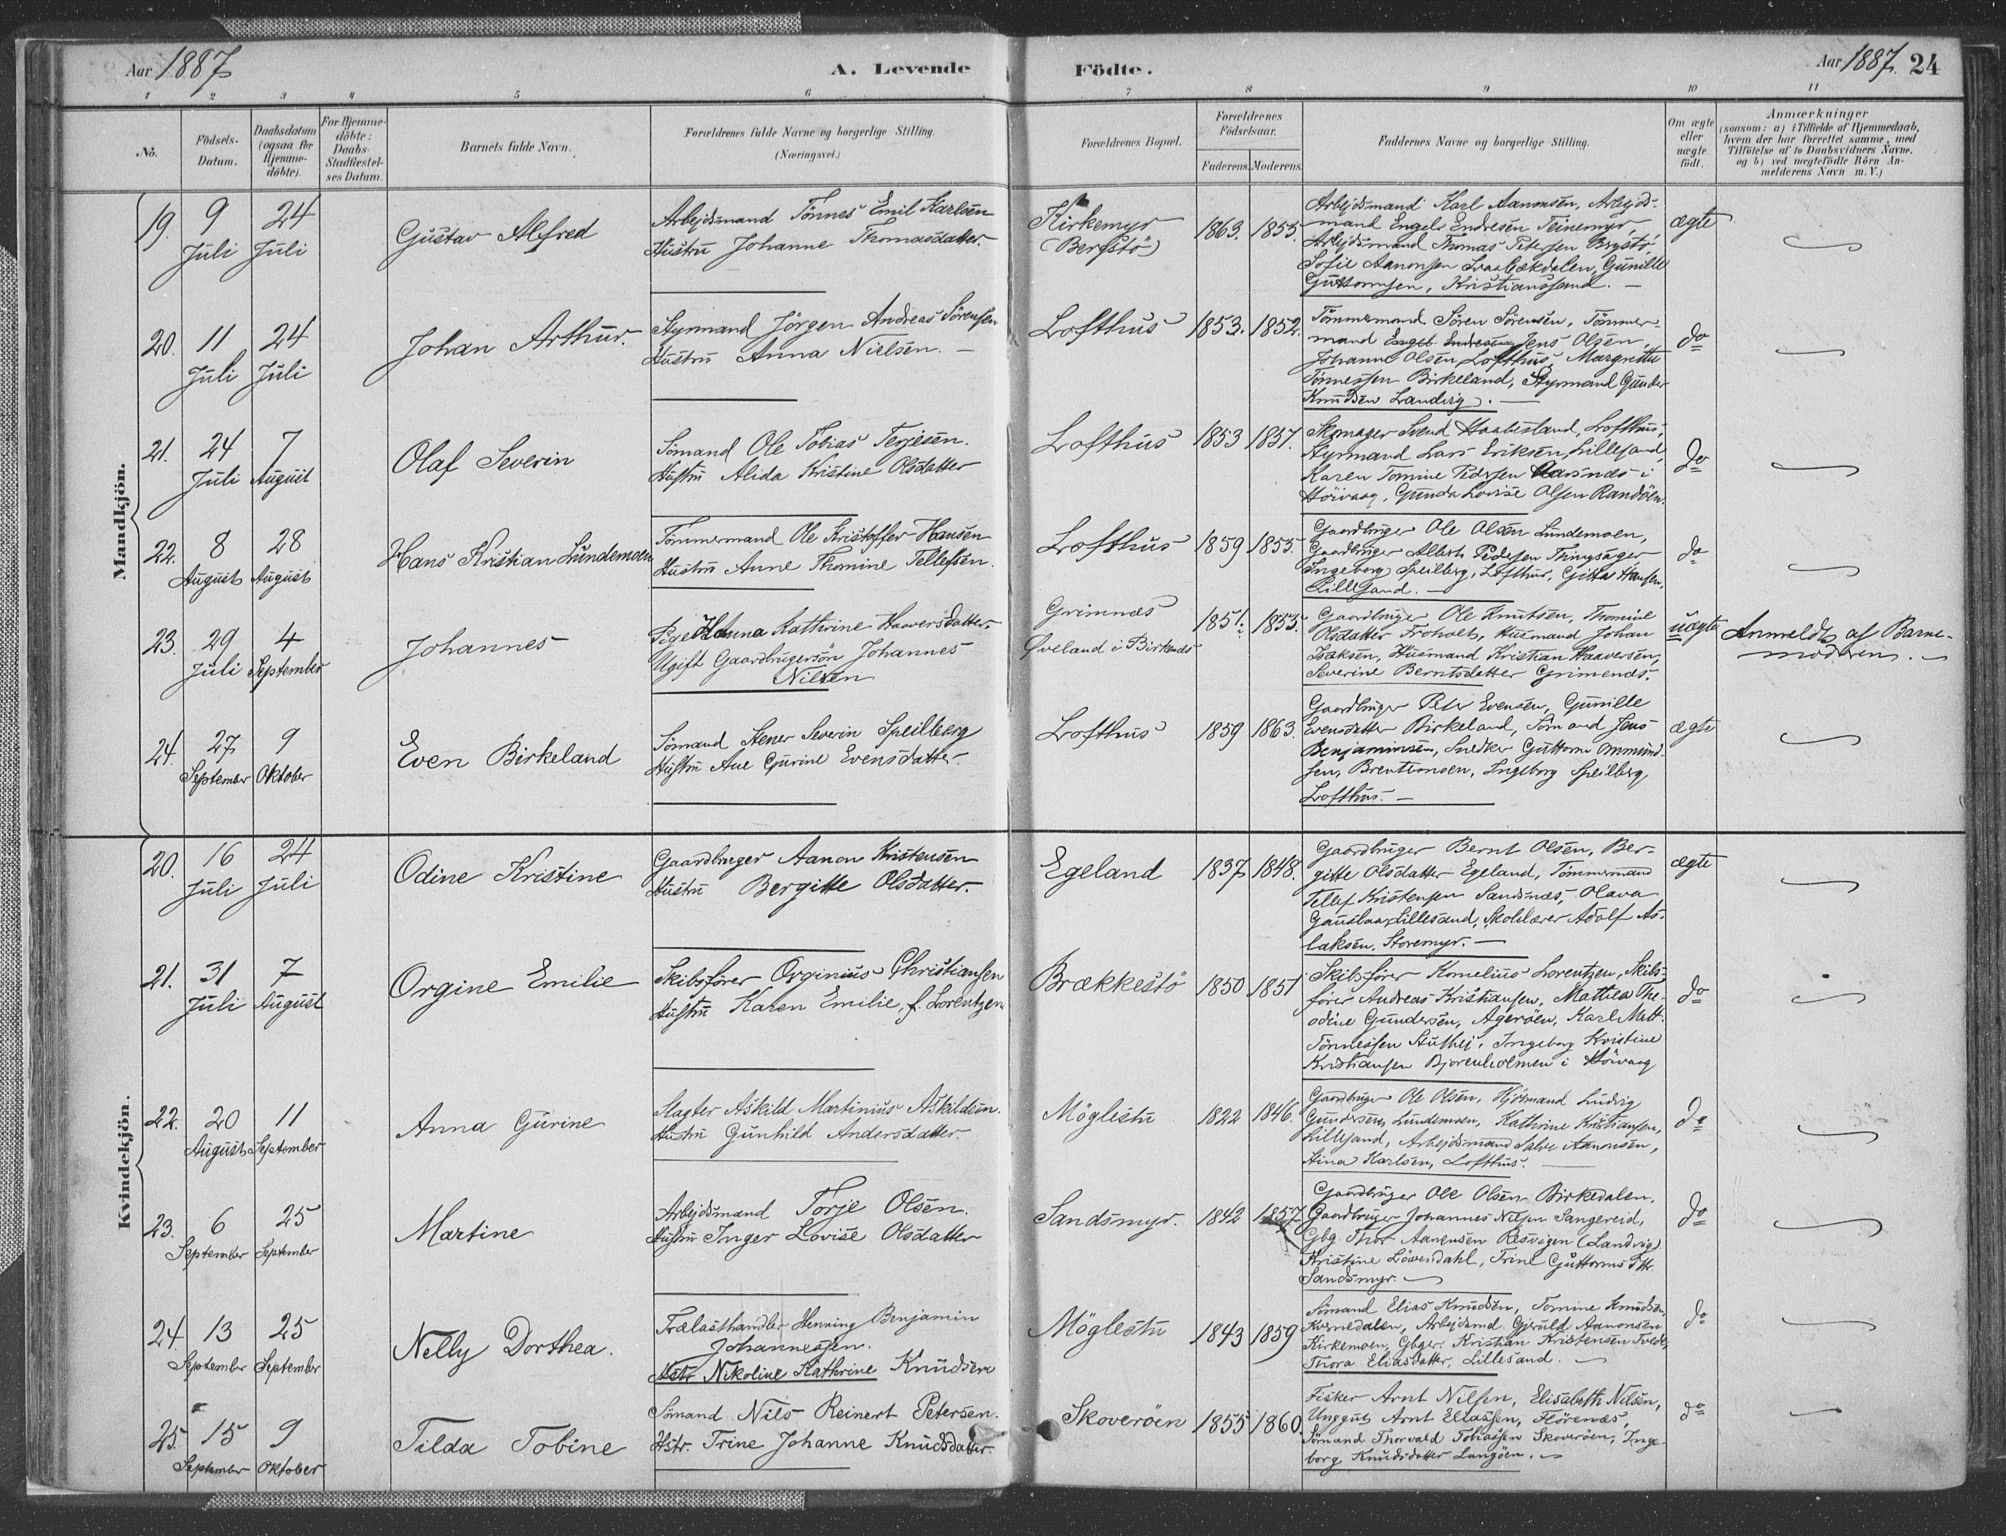 Aar 1887
A. Levende
Födte.
Aar 1887. 24
1 2 3 4 5 6 7 8 9 10 11
No.
Födsels-Datum.
Daabsdatum (ogsaa for Hjemme-döbte).
For Hjemme-döbte: Daabs-Stadfæstel-ses Datum.
Barnets fulde Navn.
Forældrenes fulde Navne og borgerlige Stilling.
(Næringsvei.)
Forældrenes Bopæl.
Forældrenes Födselsaar.
Faderens. Moderens.
Faddernes Navne og borgerlige Stilling.
Om ægte eller uægte födt.
Anmærkninger
(saasom: a) i Tilfælde af Hjemmedaab,
hvem der har forrettet samme, med
Tilföielse af to Daabsvidners Navne.
og b) ved uægtefödte Börn An-
melderens Navn m. V.)
Mandkjön.
19. 9 Juli 24 Juli
Gustav Alfred
Arbejdsmand Tönnes Emil Karlsen
Hustru Johanne Thomasdatter.
Kirkemyr
(Bergstö)
1863. 1855.
Arbejdsmand Karl Aanonsen, Arbejds-
mand Engels Endresen Teinemyr,
Arbejdsmand Thomas Petersen Brgstö,
Sofie Aanonsen Graabækdalen, Gunille
Guttormsen, Kristianssand. —
ægte
20. 11 Juli 24 Juli
Johan Arthur.
Styrmand Jörgen Andreas Sörensen
Hustru Anna Nielsen. —
Lofthus
1853. 1852.
Tömmermand Sören Sörensen, Tömmer-
mand Jens Olsen,
Johanne Olsen Lofthus, Margrethe
Tönnessen Birkeland, Styrmand Gunder
Knudsen Landvig. —
do
21. 24 Juli 7 August
Olaf Severin
Sömand Ole Tobias Terjesen.
Hustru Alida Kristine Olsdatter
Lofthus
1853 1857.
Skomager Svend Haabesland, Lofthus,
Styrmand Lars Eriksen, Lillesand
Karen Tomine Pedersen i
Höivaag, Gunda Lovise Olsen Randöen.
do
22. 8 August 28 August
Hans Kristian Lundemoen
Tömmermand Ole Kristoffer Hansen
Hustru Anne Thomine Tellefsen.
Lofthus
1859 1855.
Gaardbruger Ole Olsen Lundemoen,
Gaardbruger Albert Pedersen Thingsager
Ingeborg Speilberg, Lofthus, Gitta Hansen,
Lillesand. —
do
23. 29 Juli 4 September
Johannes
Pige Hanna Kathrine Haaversdatter
Ugift Gaardbrugersön Johannes
Nilsen
Grimnæs
Öveland i Birkenes
1851. 1853.
Gaardbruger Ole Knutsen, Thomine
Olsdatter Froholt, Husmand Johan
Isaksen, Husmand Kristian Haaversen,
Severine Berntsdatter Grimenes.
uægte
Anmeldt af Barne-
moderen.
24. 27 September 9 Oktober
Even Birkeland
Sömand Stener Severin Speilberg
Hustru Ane Gurine Evensdatter
Lofthus
1859 1863.
Gaardbruger Peter Evensen, Gunille
Evensdatter Birkeland, Sömand Jens
Benjaminsen, Snedker Guttorm Ommund-
sen, Brentemoen, Ingeborg Speilberg,
Lofthus. —
ægte
Kvindekjön.
20. 16 Juli 24 Juli
Odine Kristine
Gaardbruger Aanon Kristensen
Hustru Bergitte Olsdatter.
Egeland
1837 1848.
Gaardbruger Bernt Olsen, Ber-
gitte Olsdatter Egeland, Tömmermand
Tellef Kristensen Sandsnæs, Olava
Gauslaa Lillesand, Skolelærer Adolf As-
laksen, Storemyr. —
ægte
21. 31 Juli 7 August
Orgine Emilie
Skibsförer Orginius Christiansen
Hustru Karen Emilie, f. Lorentzen
Brækkestö
1850 1851
Skibsförer Kornelius Lorentzen, Skibs-
förer Andreas Kristiansen, Mathea The-
odine Gundersen, Ageröen, Karl Matt.
Tönnessen, Ingeborg Kristine
Kristiansen Bjorenholmen i Höivaag
do
22. 20 August 11 September
Anna Gurine
Slagter Askild Martinius Askildsen.
Hustru Gunhild Andersdatter.
Möglestu
1822 1846.
Gaardbruger Ole Olsen, Ludvig
Gundersen, Lundemoen, Kathrine Kristiansen,
Lillesand, Arbejdsmand Salve Aanonsen,
Stina Karlsen, Lofthus.
do
23. 6 September 25 September
Martine
Arbejdsmand Torje Olsen.
Hustru Inger Lovise Olsdatter
Sandsmyr.
1842 1857
Gaardbruger Ole Olsen Birkedalen,
Gaardbruger Johannes Nilsen Sangereid,
Gbg Thor Aanensen Resvigen (Landvig)
Kristine Lövendahl, Trine Guttormsdtr.
Sandsmyr.
do
24. 13 September 25 September
Nelly Dorthea.
Trælasthandler Henning Benjamin
Johannessen.
Hstr Nikoline Kathrine Knudsen
Möglestu
1843 1859
Sömand Elias Knudsen, Tomine Knudsen
Kvernedalen, Arbejdsmd Gjeruld Aanonsen
Kirkemoen, Gbger. Kristian Kristensen Tvede,
Thora Eliasdatter, Lillesand.
do
25. 15 September 9 Oktober
Tilda Tobine
Sömand Nils Reinert Petersen.
Hstr. Trine Johanne Knudsdatter.
Skoveröen
1855 1860.
Fisker Arnt Nilsen, Elisabeth Nilsen,
Unggut Arnt Eliassen, Flörenæs,
Sömand Thorvald Tobiassen Skoveröen, Inge-
borg Knudsdatter Langöen.
do